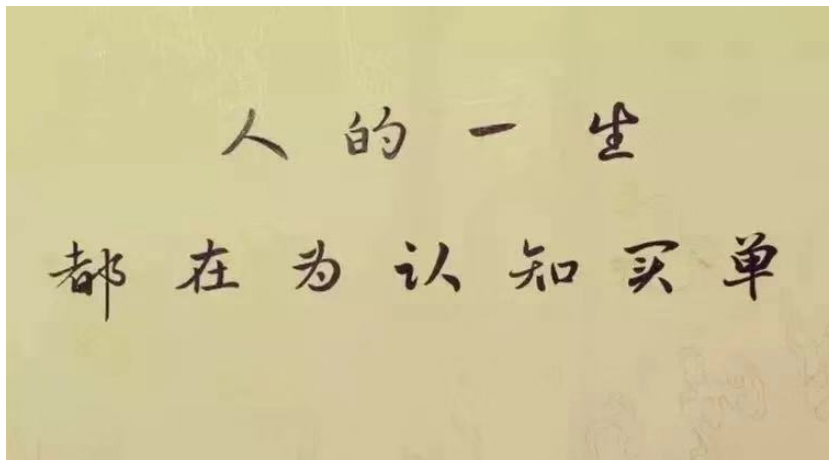 人的一生
都在为认知买单